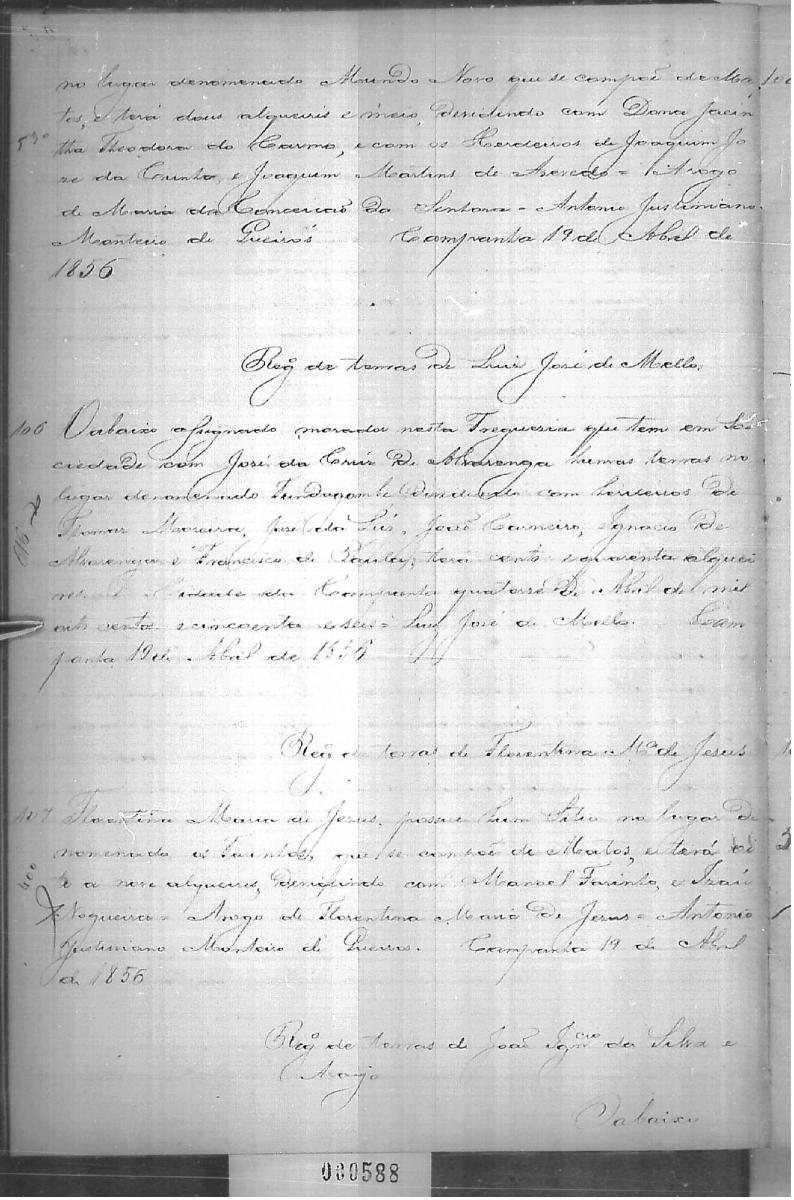 no lugar denomenado Mundo Novo que se compoê de Ma
tos, e terá dous alqueiris e meio, devidindo com Dona Jacin
530
tha Theodora do Carmo, e com os Herdeiros de Joaquim Jo
ze da Cunha, e Joaquim Martins de Asevedo = Arogo
de Maria da Conceicaõ da Senhora = Antonio Justiniano
Monteiro de Queirós Campanha 19 de Abril de
1856
Regº de terras de Luis José de Mello.
106 Oabaixo assignado, morador nesta Freguezia que tem em So
ciedade com José da Cruz de Alvarenga humas terras no
lugar denomenado devidindo com herdeiros de
Moreira, José da Luz, Joaõ Carneiro, Ignacio de
Alvarenga e Francisco de Paula, terá cento e quarenta alquei
res Cidade da Campanha quatorze de Abril de mil
oito centos e cincoenta e seis = Luis José de Mello. Cam
panha 19 de Abril de 1856
Regº de terras de Florentina Mª de Jesus
107 Florentina Maria de Jezus, possue hum Sitio no lugar de
nomenado os Farinhos, que se compoê de Matos, e terá oi
400
to a nove alqueires, devidindo com Manoel Farinho, e Izaú
Nogueira = Arogo de Florentina Maria de Jezus = Antonio
Justiniano Monteiro de Queiros. Campanha 19 de Abril
de 1856
Regº de terras de Joaõ Igncio da Silva e
Araujo
Oabaixo
000588